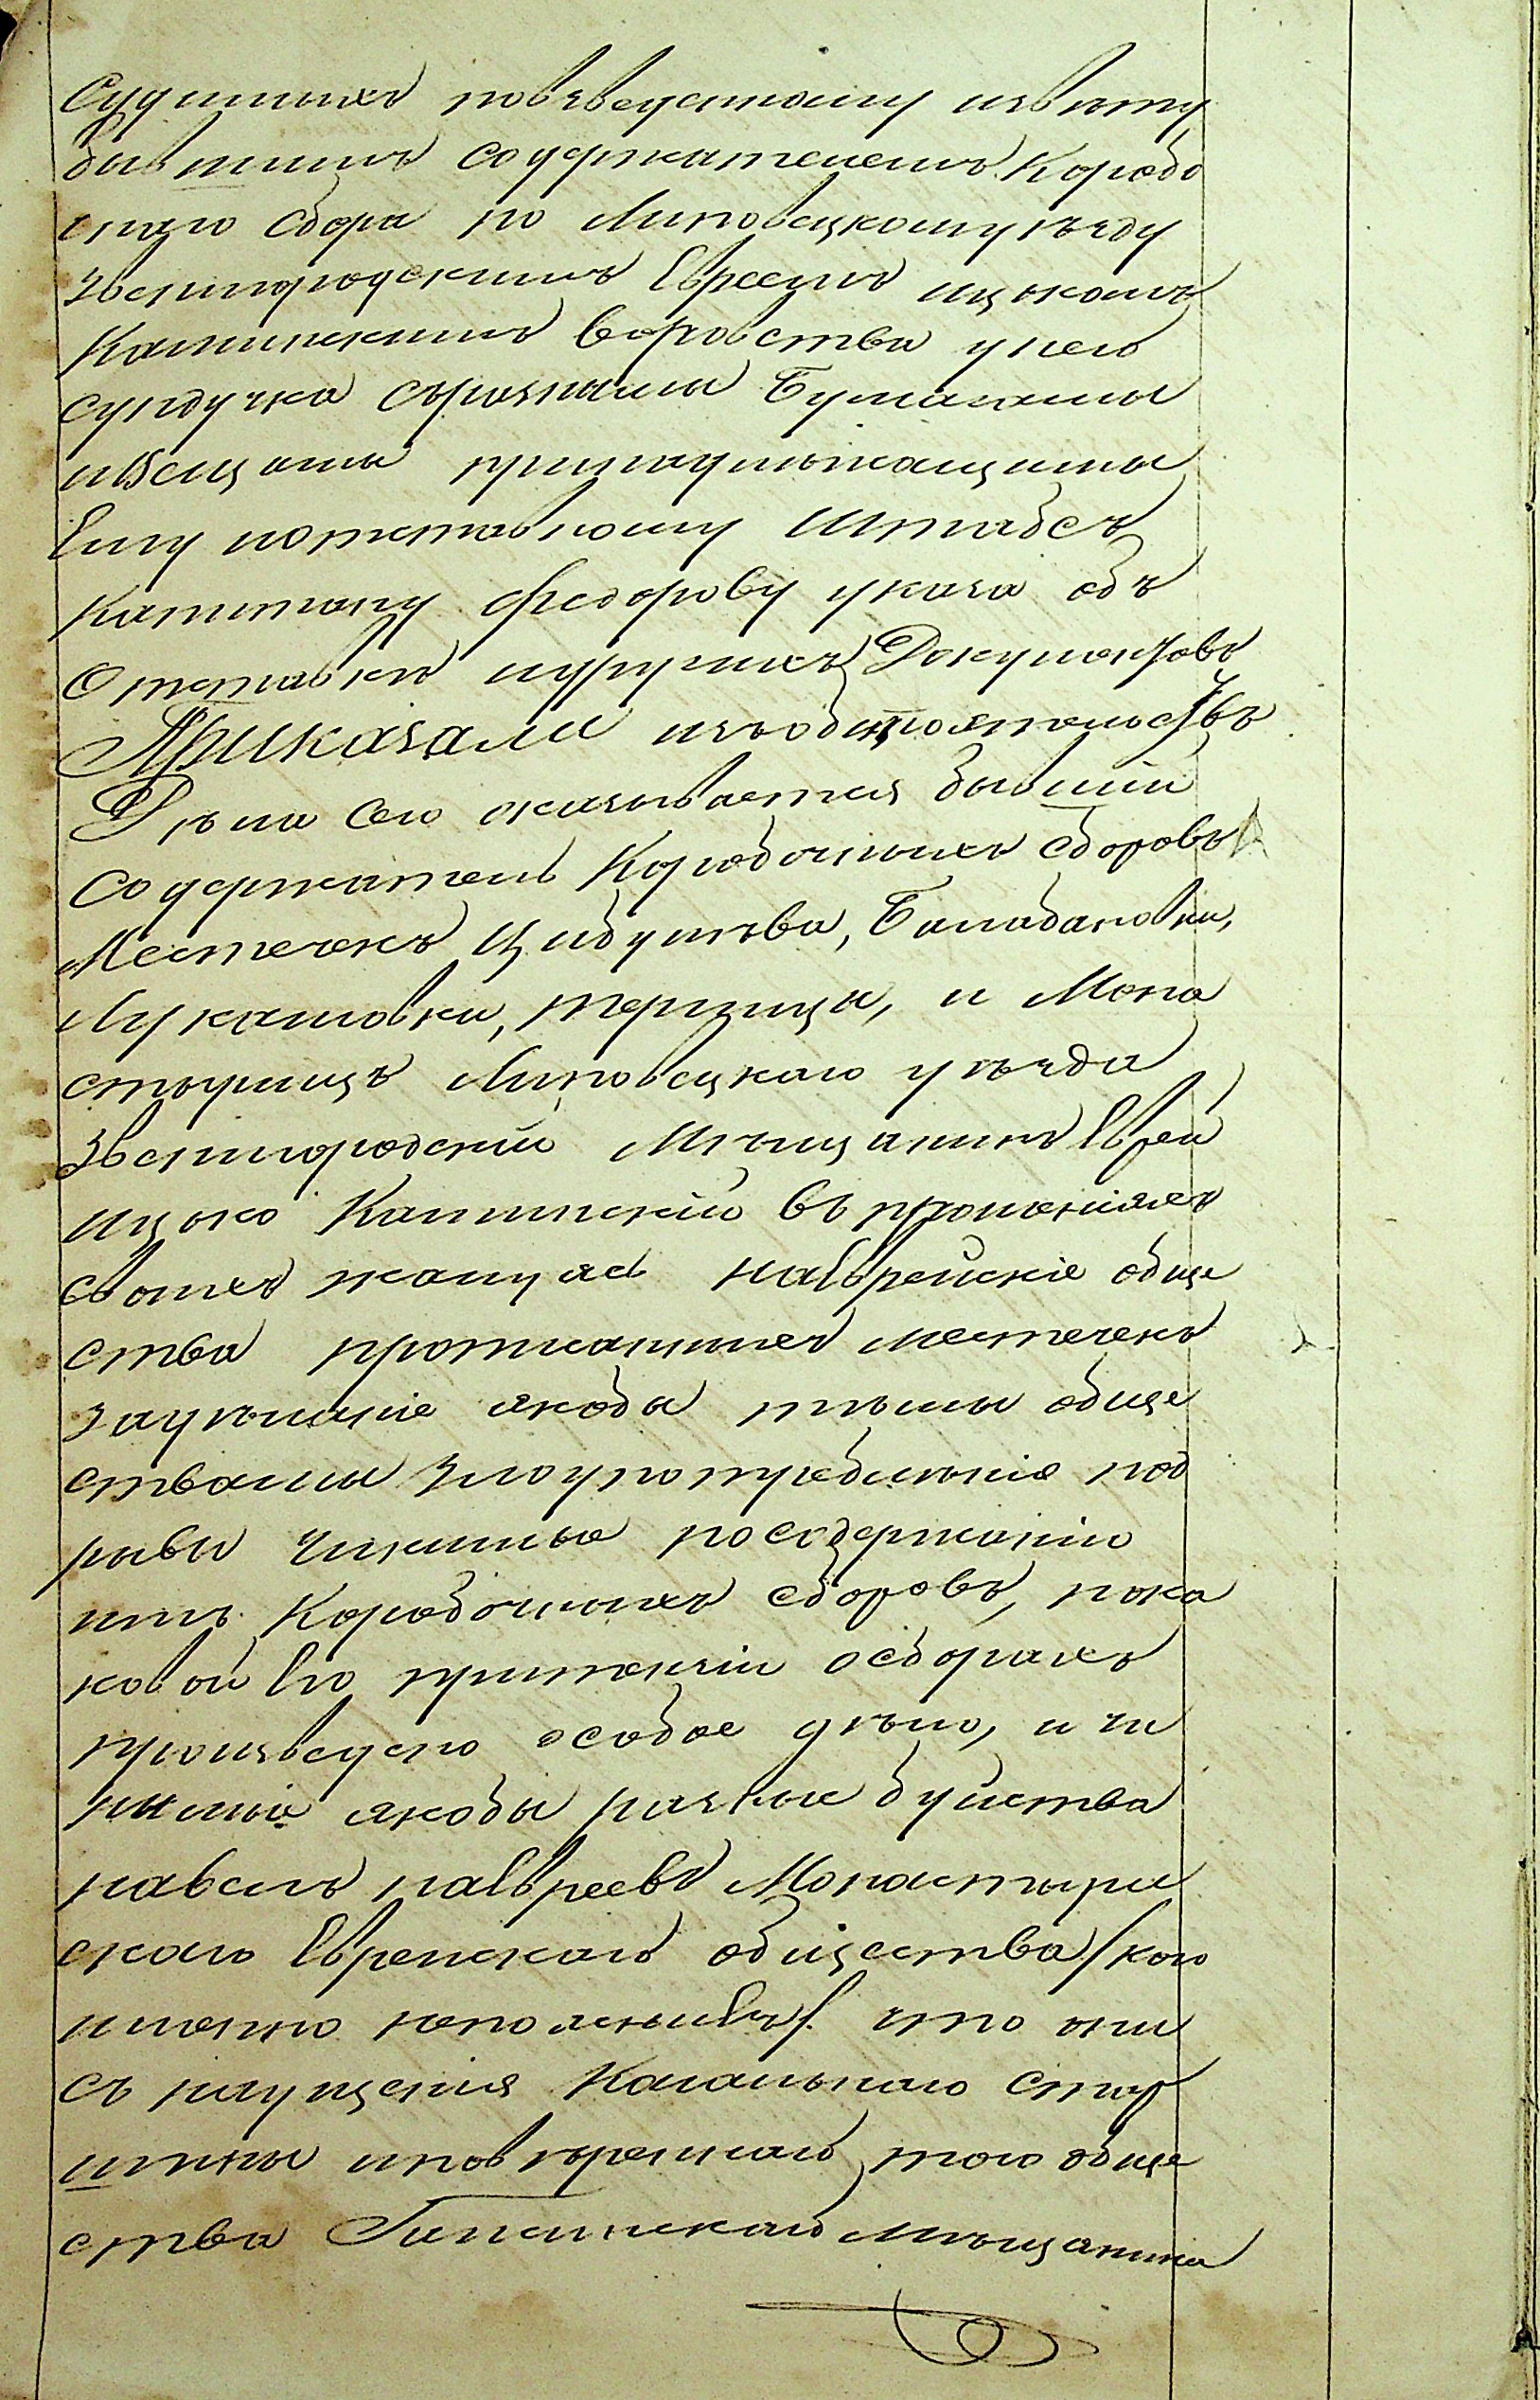 Судимыхъ повзведенному извѣту
бывшимъ содержателемъ Коробо
чнаго сбора по Липовецкому уѣзду
Звенигородскимъ Евреемъ Ицькомъ
Каминскимъ воровства унего
сундучка сразными Бумагами
ивещами принадлежащими
Ему иотставному Штабсъ
капитану Федорову указа объ
Отставкѣ идругихъ Документовъ
Приказали изъобстоятельствъ
Дѣла сего оказывается бывшій
содержатель Коробочныхъ сборовъ
Местечекъ Цибулева, Балабановки,
Лукашовки, терлица, и Мона
стырищъ Липовецкаго уѣзда
Звенигородскій Мѣщанинъ Еврей
Ицько Каминскій въ прошеніяхъ
своихъ жалуясь наЕврейскіе обще
ства прописанныхъ местечекъ
задѣланіе якобы тѣми обще
ствами злоупотребленіе под
рывы чинимые посодержанію
имъ Коробочныхъ сборовъ, нака
ковой Его притензіи осборахъ
произведено особое дѣло, и чи
нимые якобы разные буйства
навелъ наЕвреевъ Монастыри
скаго Еврейскаго общества /кого
именно непояснивъ/ что они
съ наущенія Кагальнаго стар
шины иповѣреннаго того обще
ства Гипсинскаго мѣщанина